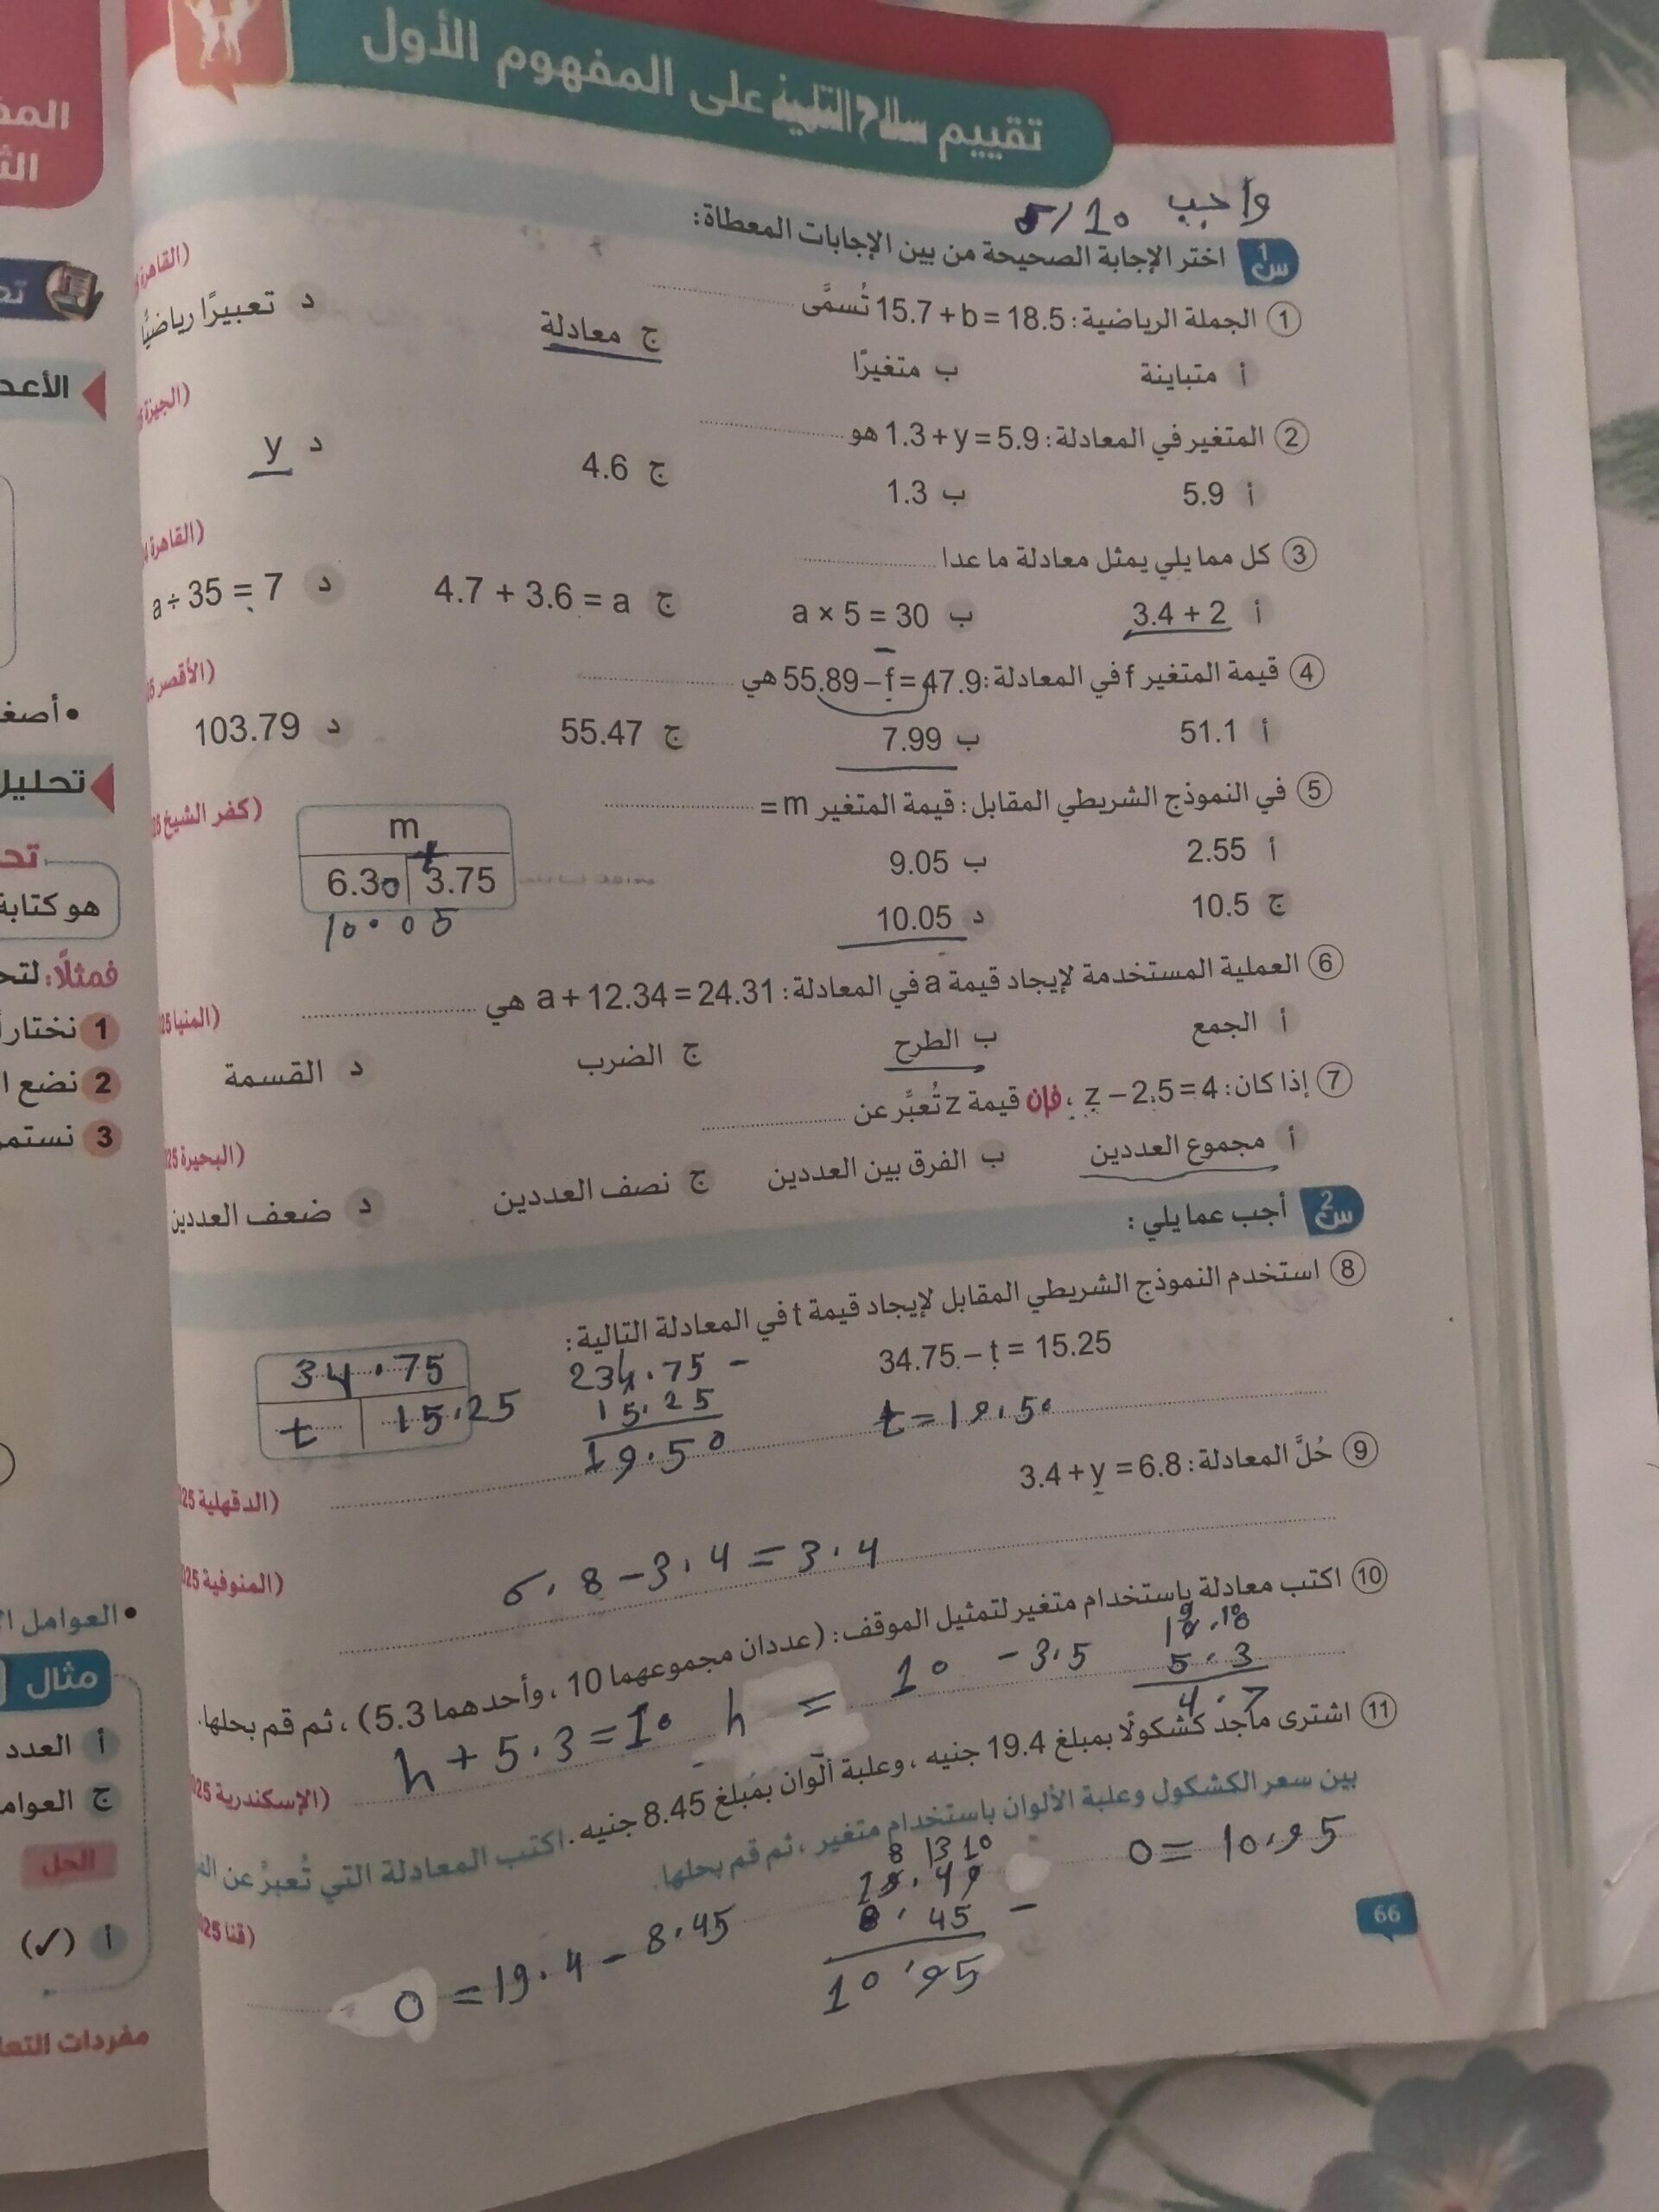 تقييم سلاح التلميذ على المفهوم الأول
واجب 5/10
س1 اختر الإجابة الصحيحة من بين الإجابات المعطاة:
1 الجملة الرياضية: 15.7 + b = 18.5 تُسمَّى ........
(القاهرة
أ متباينة ب متغيرًا ج معادلة د تعبيرًا رياضيًّا
2 المتغير في المعادلة: 1.3 + y = 5.9 هو ........
(الجيزة
أ 5.9 ب 1.3 ج 4.6 د y
3 كل مما يلي يمثل معادلة ما عدا ........
(القاهرة
أ 3.4 + 2 ب a × 5 = 30 ج 4.7 + 3.6 = a د a ÷ 35 = 7
4 قيمة المتغير f في المعادلة: 55.89 – f = 47.9 هي ........
(الأقصر
أ 51.1 ب 7.99 ج 55.47 د 103.79
5 في النموذج الشريطي المقابل: قيمة المتغير m = ........
(كفر الشيخ
أ 2.55 ب 9.05
ج 10.5 د 10.05
m
+
6.30 3.75
10.05
6 العملية المستخدمة لإيجاد قيمة a في المعادلة: a + 12.34 = 24.31 هي ........
(المنيا 25
أ الجمع ب الطرح ج الضرب د القسمة
7 إذا كان: z – 2.5 = 4 ، فإن قيمة z تُعبِّر عن ........
(البحيرة 25
أ مجموع العددين ب الفرق بين العددين ج نصف العددين د ضعف العددين
س2 أجب عما يلي:
8 استخدم النموذج الشريطي المقابل لإيجاد قيمة t في المعادلة التالية:
34.75 – t = 15.25
34.75
t 15.25
234.75 -
15.25
19.50
t = 19.50
(الدقهلية 025
9 حُلَّ المعادلة: 3.4 + y = 6.8
6.8 - 3.4 = 3.4
(المنوفية 025
10 اكتب معادلة باستخدام متغير لتمثيل الموقف: (عددان مجموعهما 10، وأحدهما 5.3)، ثم قم بحلها.
h + 5.3 = 10 h = 10 - 3.5
5.3
4.7
(الإسكندرية 025
11 اشترى ماجد كشكولًا بمبلغ 19.4 جنيه، وعلبة ألوان بمبلغ 8.45 جنيه. اكتب المعادلة التي تُعبرُ عن
بين سعر الكشكول وعلبة الألوان باستخدام متغير، ثم قم بحلها.
(قنا 025
0 = 19.4 - 8.45
8 13 10
8.45 -
10.95
0 = 10.95
66
الأعد
• أصغ
تحليل
هو كتابة
فمثلًا: لتح
1 نختار
2 نضع
3 نستمر
• العوامل
مثال
أ العدد
ج العوام
الحل
أ (✓)
مفردات التعا